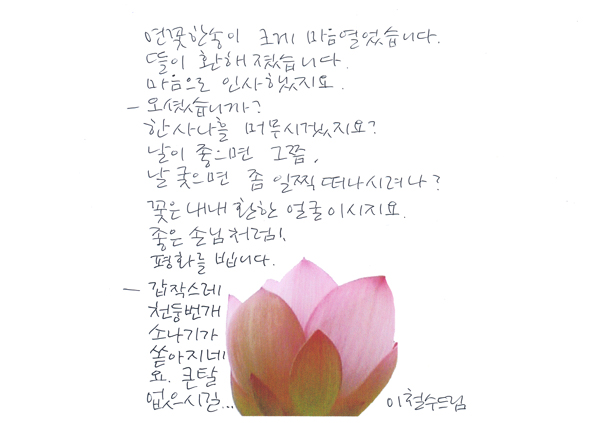 연꽃한송이 크게 마음열었습니다.
뜰이 환해졌습니다.
마음으로 인사했지요.
- 오셨습니까?
한 사나흘 머무시겠지요?
날이 좋으면 그쯤,
날 궂으면 좀 일찍 떠나시려나?
꽃은 내내 환한 얼굴이시지요.
좋은 손님처럼!
평화를 빕니다.
- 갑작스레
천둥번개
소나기가
쏟아지네
요. 큰탈
없으시길...
이철수드림